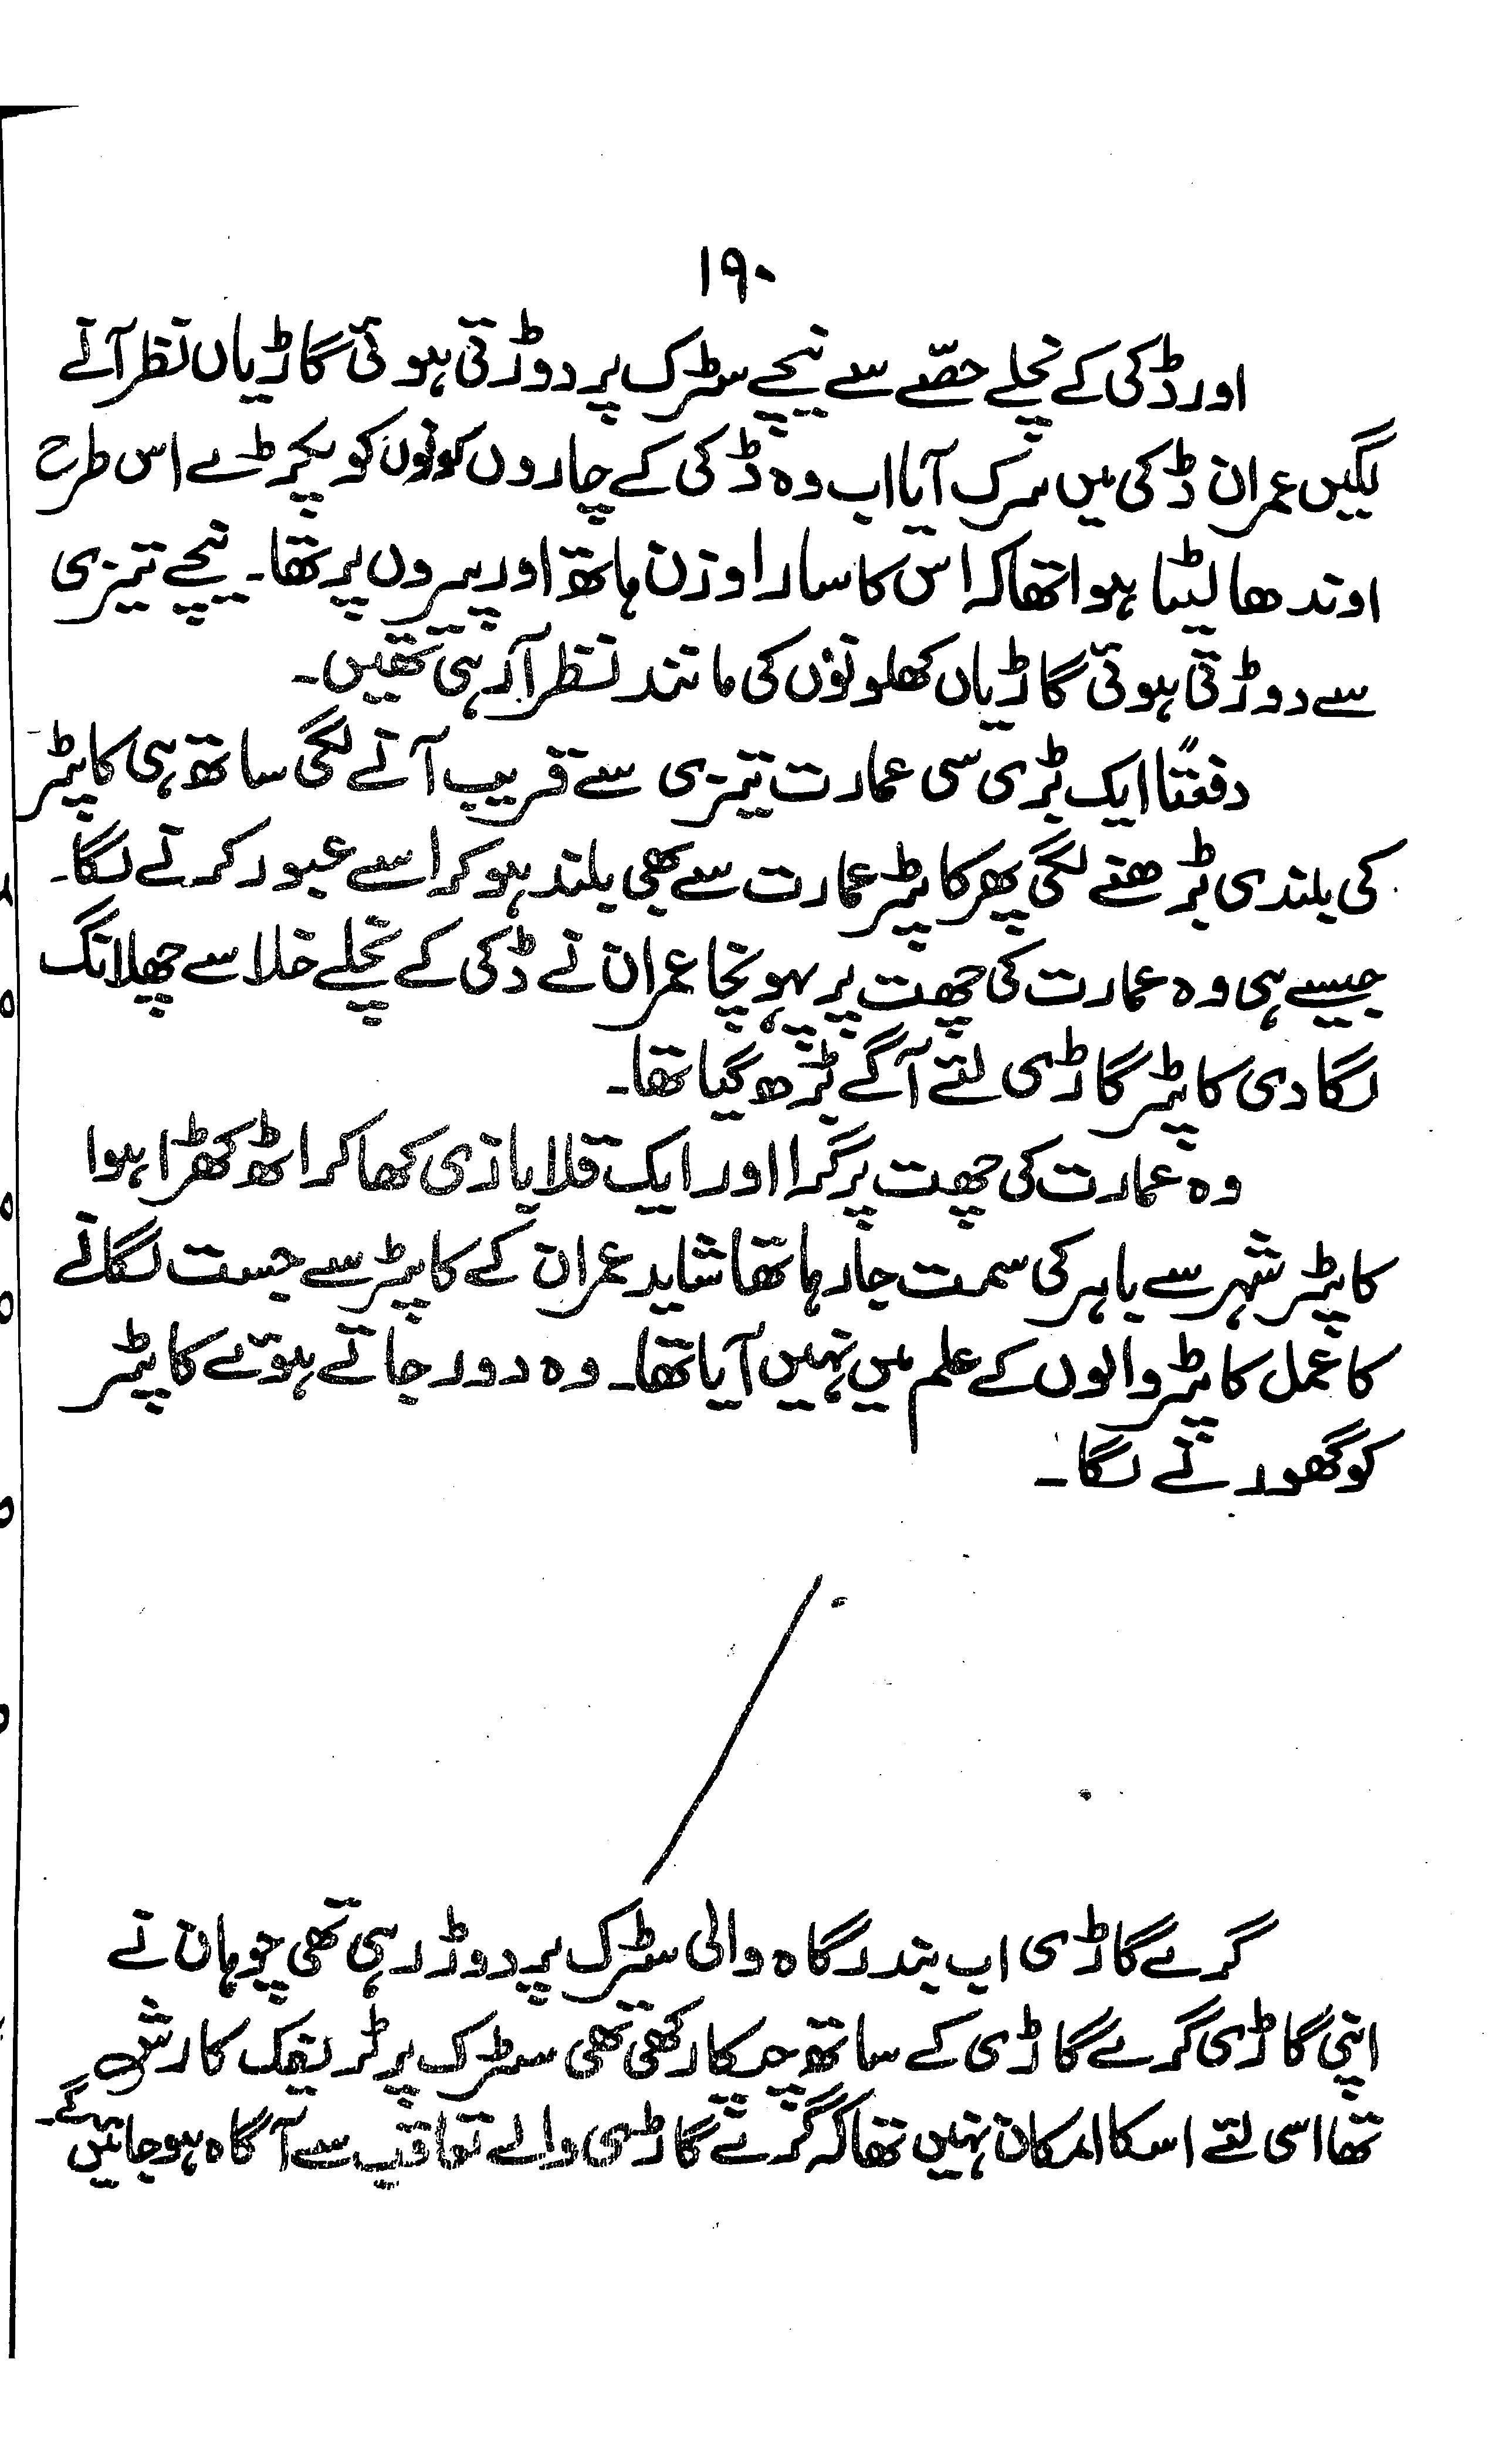 ۱۹۰
اور ڈکی کے نچلے حصّے سے نیچے سڑک پر دوڑتی ہوئی گاڑیاں نظر آنے
لگیں عمران ڈکی میں سرک آیا اب وہ ڈکی کے چاروں کونوں کو پکڑے اس طرح
اوندھا لیٹا ہوا تھا کہ اس کا سارا وزن ہاتھ اور پیروں پر تھا۔ نیچے تیزی
سے دوڑتی ہوئی گاڑیاں کھلونوں کی مانند نظر آ رہی تھیں۔
دفعتًا ایک بڑی سی عمارت تیزی سے قریب آنے لگی ساتھ ہی کاپٹر
کی بلندی بڑھنے لگی پھر کاپٹر عمارت سے بھی بلند ہو کر اسے عبور کرنے لگا۔
جیسے ہی وہ عمارت کی چھت پر پہونچا عمران نے ڈکی کے نچلے خلا سے چھلانگ
لگا دی کاپٹر گاڑی لئے آگے بڑھ گیا تھا۔
وہ عمارت کی چھت پر گرا اور ایک قلابازی کھا کر اٹھ کھڑا ہوا
کاپٹر شہر سے باہر کی سمت جا رہا تھا شاید عمران کے کاپٹر سے جست لگانے
کا عمل کاپٹر والوں کے علم میں نہیں آیا تھا۔ وہ دور جاتے ہوئے کاپٹر
کو گھورنے لگا۔
گرے گاڑی اب بندرگاہ والی سڑک پر دوڑ رہی تھی چوہان نے
اپنی گاڑی گرے گاڑی کے ساتھ چپکا رکھی تھی سڑک پر ٹریفک کا رش
تھا اسی لئے اسکا امکان نہیں تھا کہ گرے گاڑی والے تعاقب سے آگاہ ہو جائیں گے۔